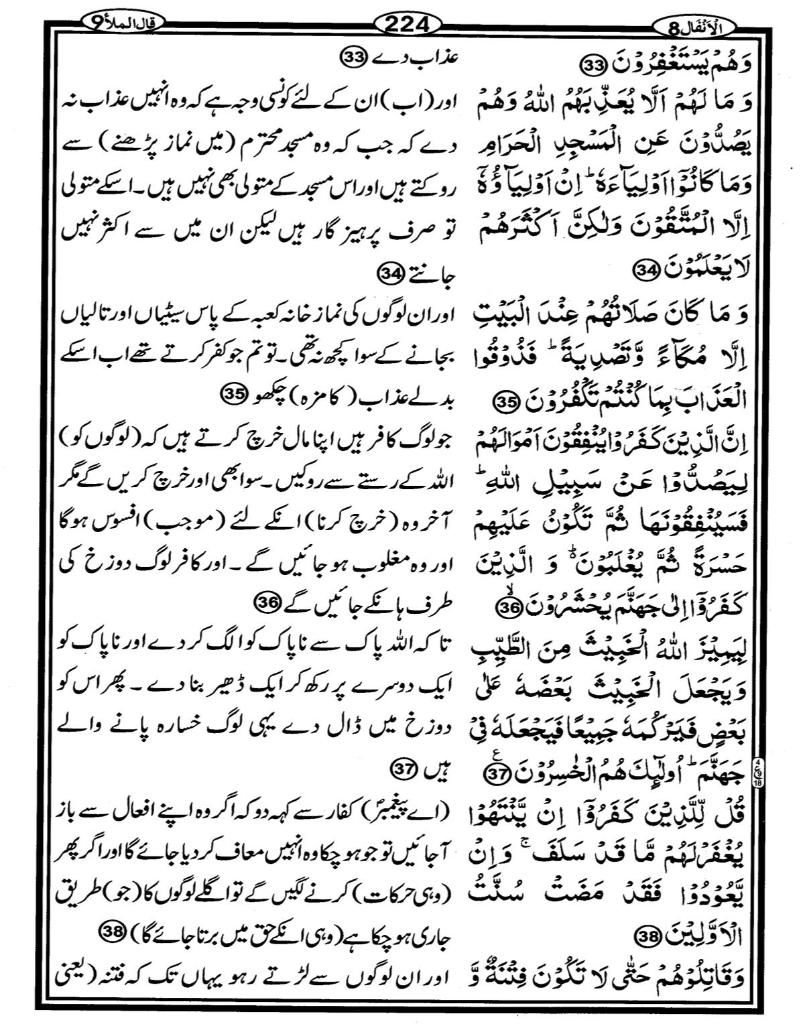 الانفال 8
224
قال الملأ 9
وَهُمْ يَسْتَغْفِرُوْنَ 33
وَ مَا لَهُمْ اَلَّا يُعَذِّبَهُمُ اللّٰهُ وَهُمْ
يَصُدُّوْنَ عَنِ الْمَسْجِدِ الْحَرَامِ
وَمَا كَانُوْٓا اَوْلِيَآءَهٗ ؕ اِنْ اَوْلِيَآؤُهٗٓ
اِلَّا الْمُتَّقُوْنَ وَلٰكِنَّ اَكْثَرَهُمْ
لَا يَعْلَمُوْنَ 34
وَ مَا كَانَ صَلَاتُهُمْ عِنْدَ الْبَيْتِ
اِلَّا مُكَآءً وَّتَصْدِيَةً ؕ فَذُوْقُوا
الْعَذَابَ بِمَا كُنْتُمْ تَكْفُرُوْنَ 35
اِنَّ الَّذِيْنَ كَفَرُوْا يُنْفِقُوْنَ اَمْوَالَهُمْ
لِيَصُدُّوْا عَنْ سَبِيْلِ اللّٰهِ ؕ
فَسَيُنْفِقُوْنَهَا ثُمَّ تَكُوْنُ عَلَيْهِمْ
حَسْرَةً ثُمَّ يُغْلَبُوْنَ ؕ۬ وَ الَّذِيْنَ
كَفَرُوْٓا اِلٰى جَهَنَّمَ يُحْشَرُوْنَ ۙ 36
لِيَمِيْزَ اللّٰهُ الْخَبِيْثَ مِنَ الطَّيِّبِ
وَيَجْعَلَ الْخَبِيْثَ بَعْضَهٗ عَلٰى
بَعْضٍ فَيَرْكُمَهٗ جَمِيْعًا فَيَجْعَلَهٗ فِيْ
جَهَنَّمَ ؕ اُولٰٓئِكَ هُمُ الْخٰسِرُوْنَ 37 ع
قُلْ لِّلَّذِيْنَ كَفَرُوْٓا اِنْ يَّنْتَهُوْا
يُغْفَرْ لَهُمْ مَّا قَدْ سَلَفَ ۚ وَاِنْ
يَّعُوْدُوْا فَقَدْ مَضَتْ سُنَّتُ
الْاَوَّلِيْنَ 38
وَقَاتِلُوْهُمْ حَتّٰى لَا تَكُوْنَ فِتْنَةٌ وَّ
عذاب دے 33
اور (اب) ان کے لئے کونسی وجہ ہے کہ وہ انہیں عذاب نہ
دے کہ جب کہ وہ مسجد محترم (میں نماز پڑھنے) سے
روکتے ہیں اور اس مسجد کے متولی بھی نہیں ہیں۔ اسکے متولی
تو صرف پرہیز گار ہیں لیکن ان میں سے اکثر نہیں
جانتے 34
اور ان لوگوں کی نماز خانہ کعبہ کے پاس سیٹیاں اور تالیاں
بجانے کے سوا کچھ نہ تھی۔ تو تم جو کفر کرتے تھے اب اسکے
بدلے عذاب (کا مزہ) چکھو 35
جو لوگ کافر ہیں اپنا مال خرچ کرتے ہیں کہ (لوگوں کو)
اللہ کے رستے سے روکیں۔ سو ابھی اور خرچ کریں گے مگر
آخر وہ (خرچ کرنا) انکے لئے (موجب) افسوس ہوگا
اور وہ مغلوب ہو جائیں گے۔ اور کافر لوگ دوزخ کی
طرف ہانکے جائیں گے 36
تا کہ اللہ پاک سے ناپاک کو الگ کر دے اور ناپاک کو
ایک دوسرے پر رکھ کر ایک ڈھیر بنا دے۔ پھر اس کو
دوزخ میں ڈال دے یہی لوگ خسارہ پانے والے
ہیں 37
(اے پیغمبرؐ) کفار سے کہہ دو کہ اگر وہ اپنے افعال سے باز
آجائیں تو جو ہو چکا وہ انہیں معاف کر دیا جائے گا اور اگر پھر
(وہی حرکات) کرنے لگیں گے تو اگلے لوگوں کا (جو) طریق
جاری ہو چکا ہے (وہی انکے حق میں برتا جائے گا) 38
اور ان لوگوں سے لڑتے رہو یہاں تک کہ فتنہ (یعنی